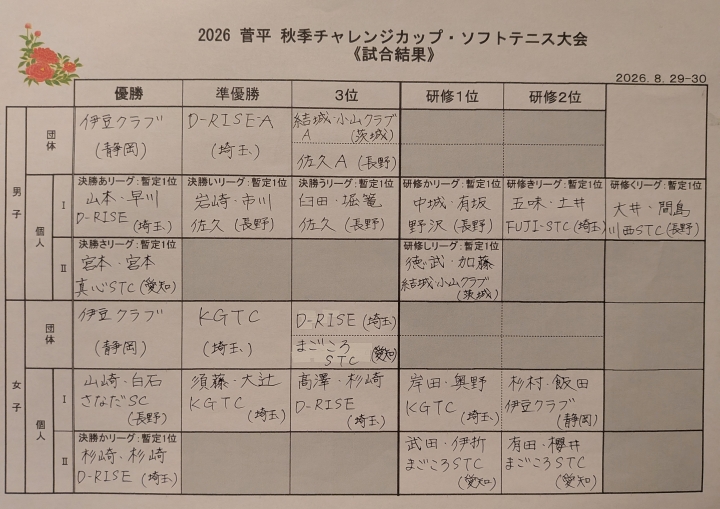 2026 菅平 秋季チャレンジカップ・ソフトテニス大会
《試合結果》
2026. 8. 29-30
優勝 準優勝 3位 研修1位 研修2位
男子
団体
伊豆クラブ
(静岡)
D-RISE-A
(埼玉)
結城・小山クラブ
A (茨城)
佐久A (長野)
個人
I
決勝あリーグ:暫定1位
山本・早川
D-RISE (埼玉)
決勝いリーグ:暫定1位
岩崎・市川
佐久 (長野)
決勝うリーグ:暫定1位
臼田・堀篭
佐久 (長野)
研修かリーグ:暫定1位
中城・有坂
野沢 (長野)
研修きリーグ:暫定1位
五味・土井
FUJI-STC (埼玉)
研修くリーグ:暫定1位
大井・間島
川西STC (長野)
II
決勝さリーグ:暫定1位
宮本・宮本
真心STC (愛知)
研修しリーグ:暫定1位
徳武・加藤
結城・小山クラブ
(茨城)
女子
団体
伊豆クラブ
(静岡)
KGTC
(埼玉)
D-RISE (埼玉)
まごころ
STC (愛知)
個人
I
山崎・白石
さなだSC
(長野)
須藤・大辻
KGTC (埼玉)
高澤・杉崎
D-RISE
(埼玉)
岸田・奥野
KGTC (埼玉)
杉村・飯田
伊豆クラブ
(静岡)
II
決勝かリーグ:暫定1位
杉崎・杉崎
D-RISE (埼玉)
武田・伊折
まごころSTC
(愛知)
有田・櫻井
まごころSTC
(愛知)